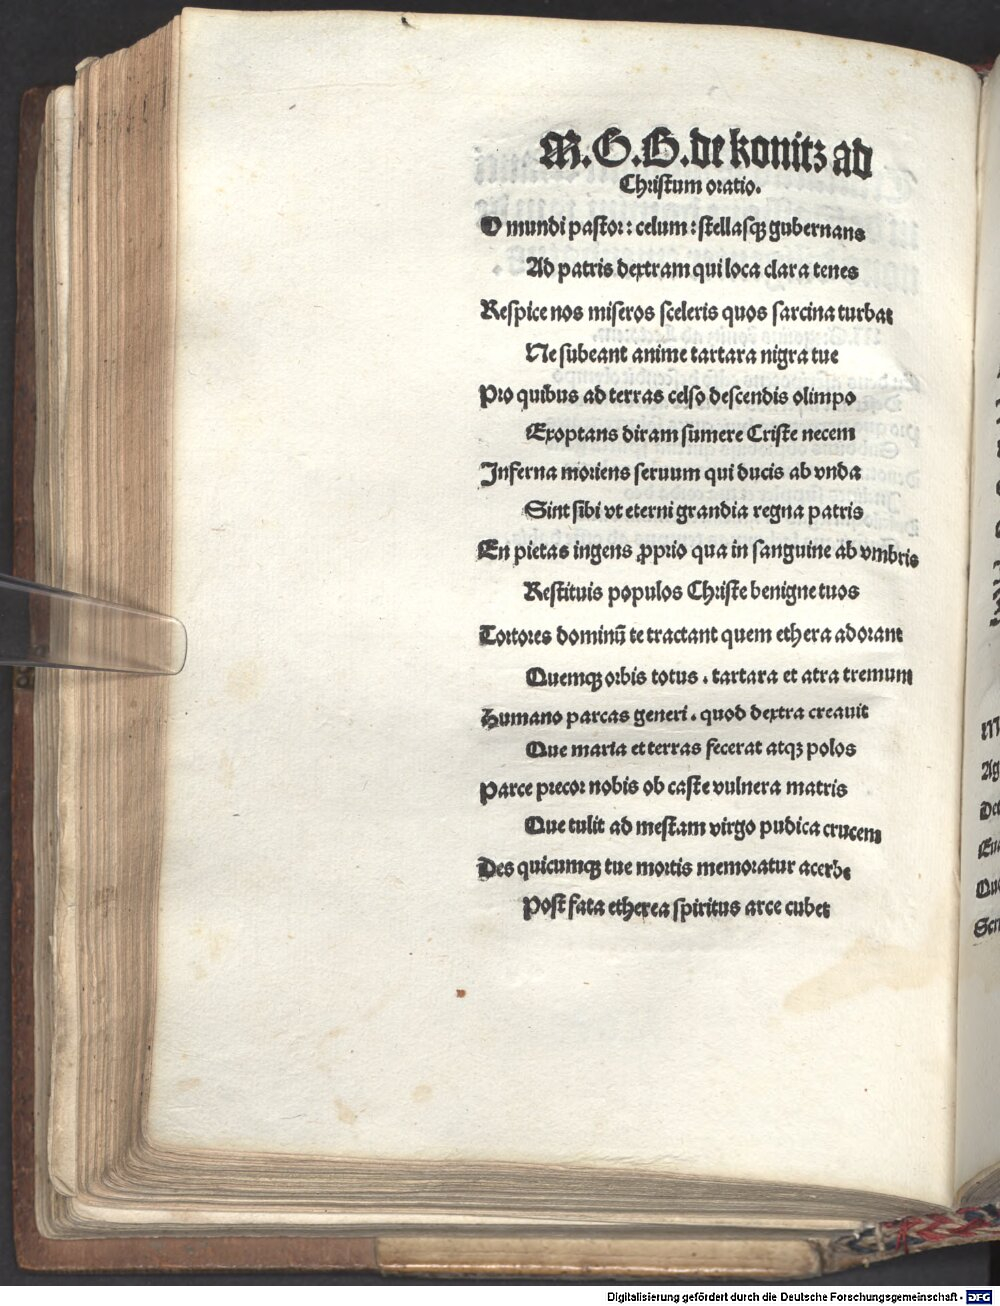 M.G.B. de konitz ad
Christum oratio.
O mundi pastor: celum: stellasqꝫ gubernans
Ad patris dextram qui loca clara tenes
Respice nos miseros sceleris quos sarcina turbat
Ne subeant anime tartara nigra tue
Pro quibus ad terras celso descendis olimpo
Exoptans diram sumere Criste necem
Inferna moriens seruum qui ducis ab vnda
Sint sibi vt eterni grandia regna patris
En pietas ingens ꝓprio qua in sanguine ab vmbris
Restituis populos Christe benigne tuos
Tortores dominū te tractant quem ethera adorant
Quemqꝫ orbis totus. tartara et atra tremunt
Humano parcas generi. quod dextra creauit
Que maria et terras fecerat atqꝫ polos
Parce precor nobis ob caste vulnera matris
Que tulit ad mestam virgo pudica crucem
Des quicumqꝫ tue mortis memoratur acerbe
Post fata etherea spiritus arce cubet
Digitalisierung gefördert durch die Deutsche Forschungsgemeinschaft - DFG